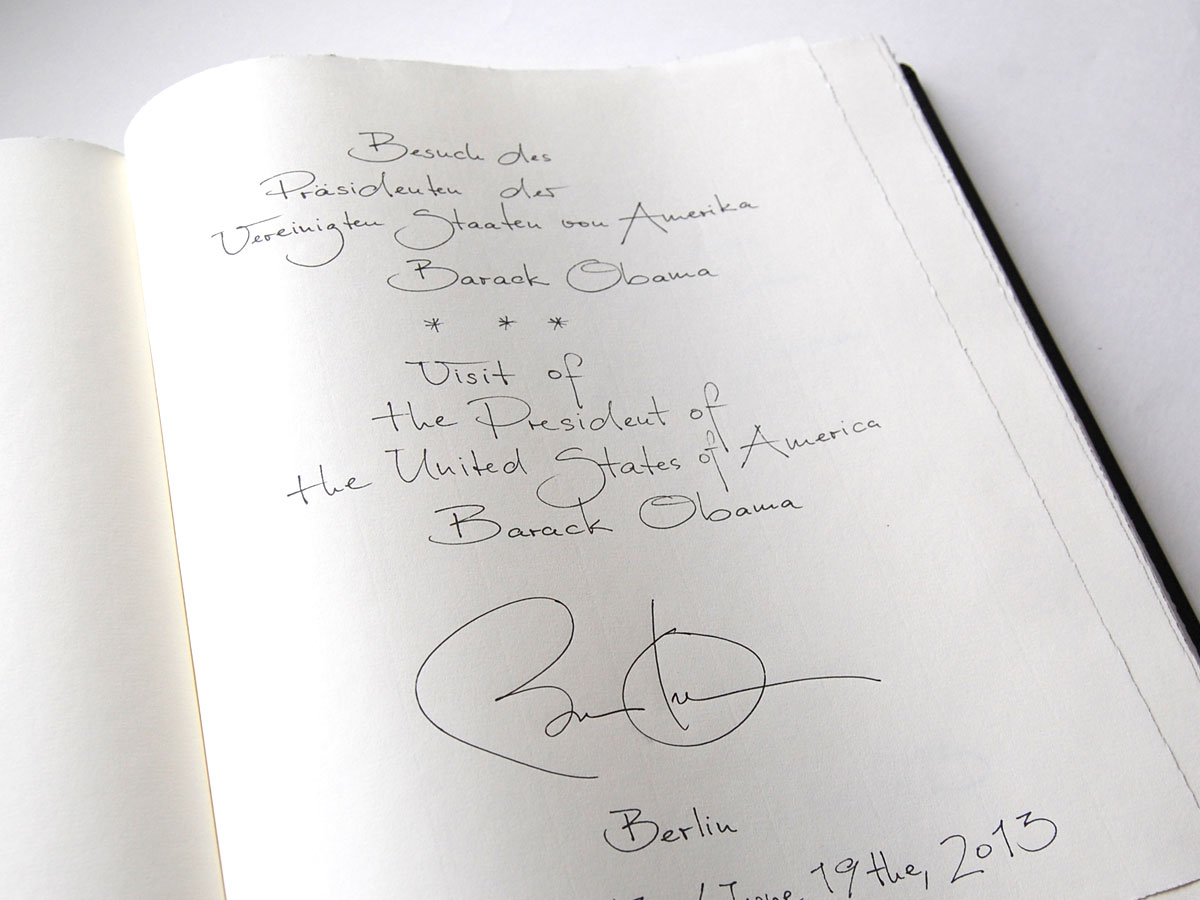 Besuch des
Präsidenten der
Vereinigten Staaten von Amerika
Barack Obama
* * *
Visit of
the President of
the United States of America
Barack Obama
Berlin
/ June 19the, 2013